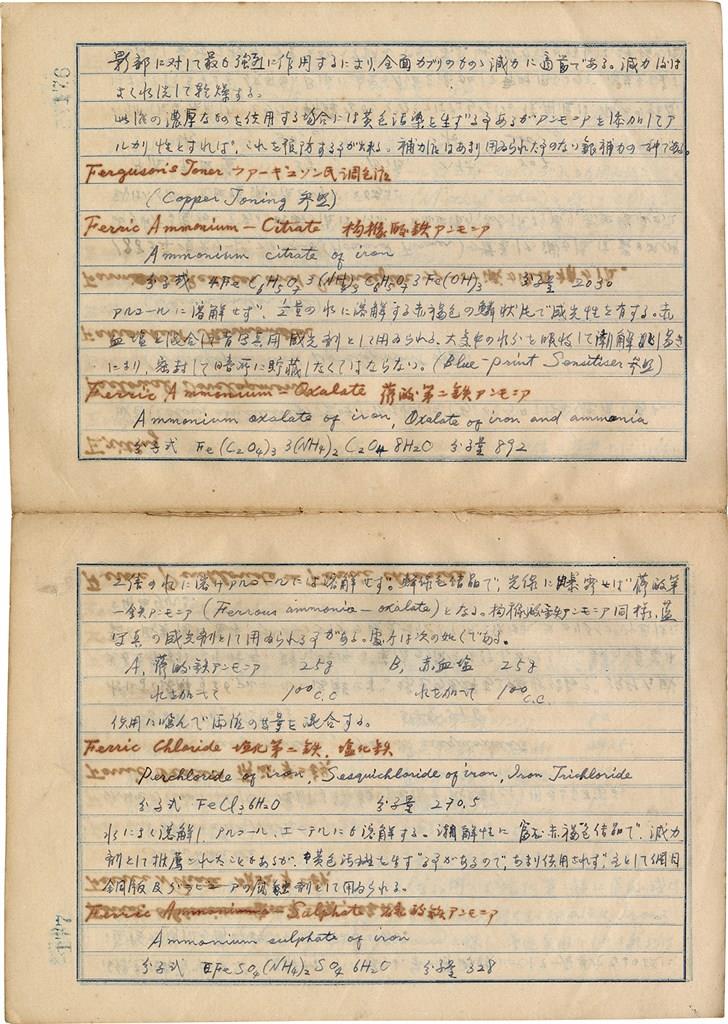 影部に対して最も強烈に作用するにより、全面カブリのもの減力に適当である。減力後は
よく水洗して乾燥する。
此液の濃厚なものを使用する場合には黄色汚染を生ずる事あるがアンモニアを添加してア
ルカリ性とすれば、これを予防する事が出来る。補力法はあまり用ゐられた事のない銀補力の一種である。
Ferguson's Toner ファーギュソン氏調色液
(Copper Toning 参照)
Ferric Ammonium - Citrate 枸櫞酸鉄アンモニア
Ammonium citrate of iron
分子式 4Fe C6H5O7 3(NH4)3 C6H5O7 3Fe(OH)3 分子量 2030
アルコールに溶解せず、量の水に溶解する赤褐色の鱗状片で感光性を有する。赤
血塩と混合し青写真用感光剤として用ゐられる。大気中の水分を吸収して潮解し易き
により、密封して暗所に貯蔵しなくてはならない。(Blue-print Sensitiser 参照)
Ferric Ammonium - Oxalate 蓚酸第二鉄アンモニア
Ammonium oxalate of iron, Oxalate of iron and ammonia
分子式 Fe(C2O4)3 3(NH4)2 C2O4 8H2O 分子量 892
2倍の水に溶けアルコールには溶解せず。鮮緑色結晶で、光線に曝露せば蓚酸第
一鉄アンモニア (Ferrous ammonia-oxalate) となる。枸櫞酸鉄アンモニア同様、藍
写真の感光剤として用ゐられる事がある。處方は次の如くである。
A, 蓚酸鉄アンモニア 25g B, 赤血塩 25g
水を加へて 100c.c 水を加へて 100c.c.
使用に臨んで両液の等量を混合する。
Ferric Chloride 塩化第二鉄, 塩化鉄
Perchloride of iron, Sesquichloride of iron, Iron Trichloride
分子式 FeCl3 6H2O 分子量 270.5
水によく溶解し、アルコール、エーテルにも溶解する。潮解性に富む赤褐色結晶で、減力
剤として推薦されたことがあるが、黄色汚染を生ずる事があるので、あまり使用されず、主として網目
銅版及グラビュアの腐蝕剤として用ゐられる。
Ferric Ammonium - Sulphate 硫酸鉄アンモニア
Ammonium sulphate of iron
分子式 FeSO4(NH4)2SO4 6H2O 分子量 328